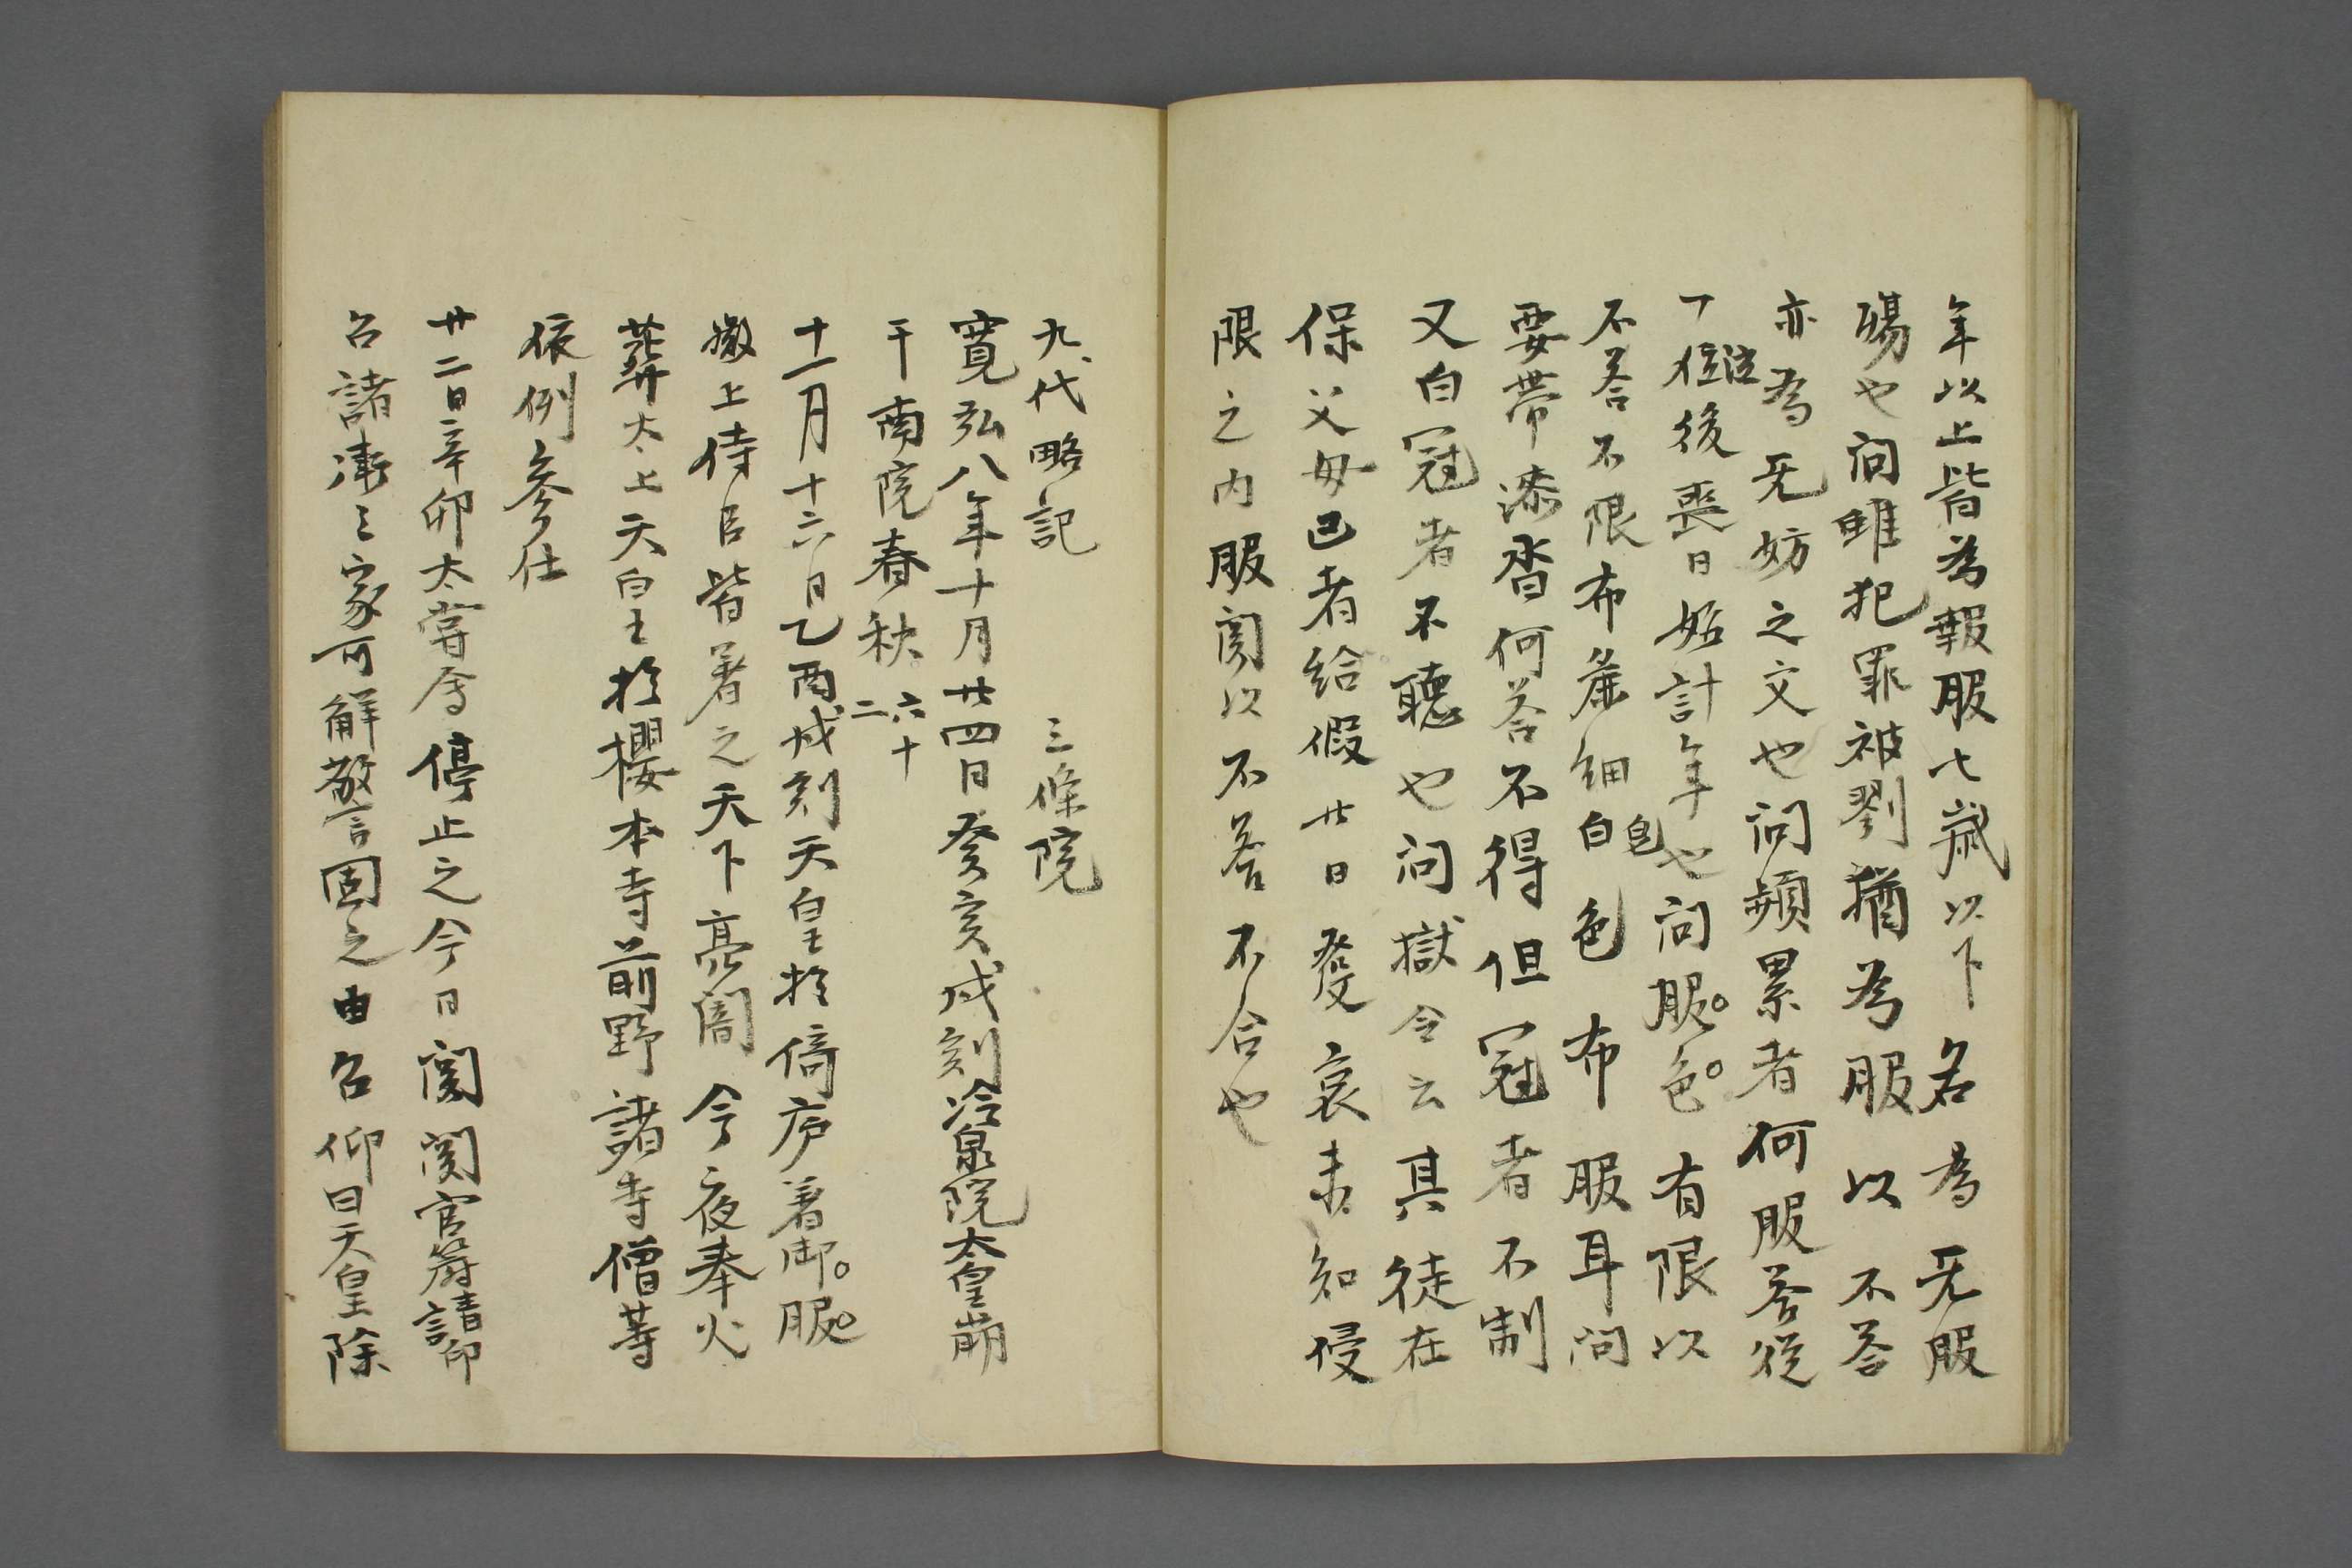 年以上皆為報服七歳以下名為无服
殤也問雖犯罪被刑猶為服以不答
亦為无妨之文也問頻累者何服答従
後喪日始計年也問服色有限以
不答不限布麁細白色布服耳問
要帯漆沓何答不得但冠者不制
又白冠者不聴也問獄令云其徒在
保父母已者給假廿日發哀未知侵
限之内服闋以不答不合也
九代略記 三條院
寛弘八年十月廿四日癸亥戌刻冷泉院太皇崩
于南院春秋六十二
十一月十六日乙酉戌刻天皇於倚庐着御服
撤上侍臣皆著之天下亮闇今夜奉火
葬太上天皇於櫻本寺前野諸寺僧等
依例参仕
廿二日辛卯大嘗會停止之今日関関官符請印
召諸衛々家可解警固之由召仰日天皇除